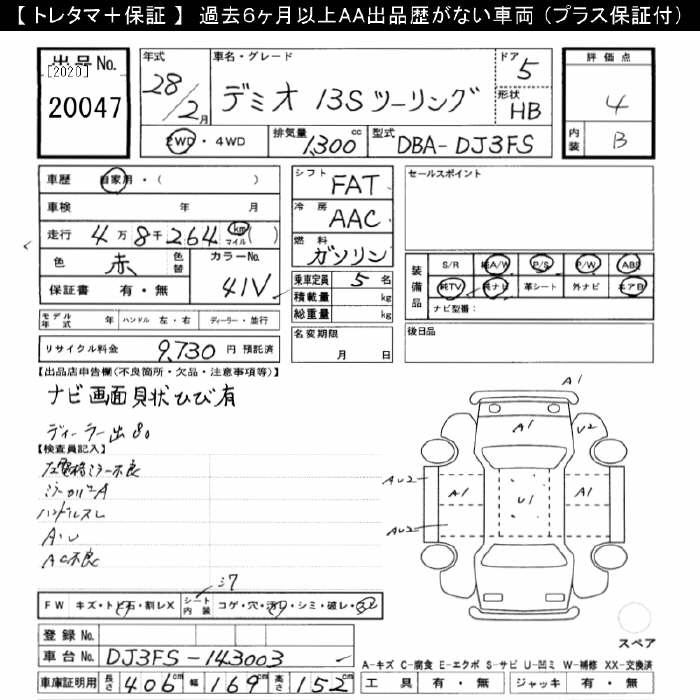 【 トレタマ＋保証 】 過去６ヶ月以上AA出品歴がない車両（プラス保証付）
出品No.
[2020]
20047
年式
28/2月
車名・グレード
デミオ 13S ツーリング
ドア
5
形状
HB
2WD・4WD
排気量
1,300 cc
型式
DBA-DJ3FS
評価点
4
内装
B
車歴 自家用・( )
車検 年 月
走行 4万8千264 km マイル ( )
色 赤 色替 カラーNo. 41V
保証書 有・無
モデル年式 年 ハンドル 左・右 ディーラー・並行
リサイクル料金 9,730 円 預託済
シフト FAT
冷房 AAC
燃料 ガソリン
乗車定員 5 名
積載量 kg
総重量 kg
名変期限
月 日
セールスポイント
装備品
S/R 純A/W P/S P/W ABS
純TV 純ナビ 革シート 外ナビ エアB
ナビ型番:
後日品
【出品店申告欄(不良箇所・欠品・注意事項等)】
ナビ画面貝状ひび有
ディーラー出
【検査員記入】
ハンドルスレ
A.U
AC不良
A1
A1
U2
AU2
A1
U1
A1
AU2
シワ
FW キズ・トビ石・割レX シート内装 コゲ・穴・汚レ・シミ・破レ・スレ
登録No.
車台No. DJ3FS-143003
車庫証明用 長さ 406cm 幅 169cm 高さ 152cm
スペア
A-キズ C-腐食 E-エクボ S-サビ U-凹ミ W-補修 XX-交換済
工具 有・無 ジャッキ 有・無